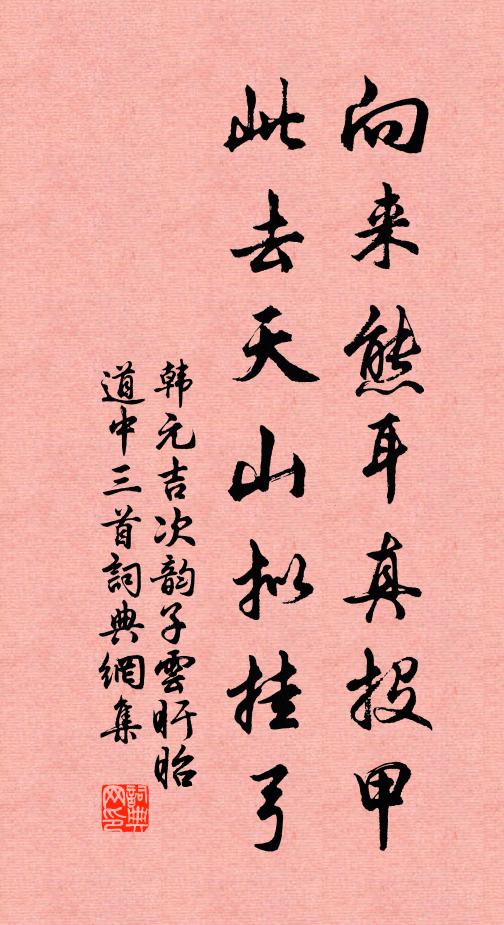 向来熊耳真投甲
此去天山拟挂弓
韩元吉次韵子雲盱眙
道中三首詞典網集
詞典网印